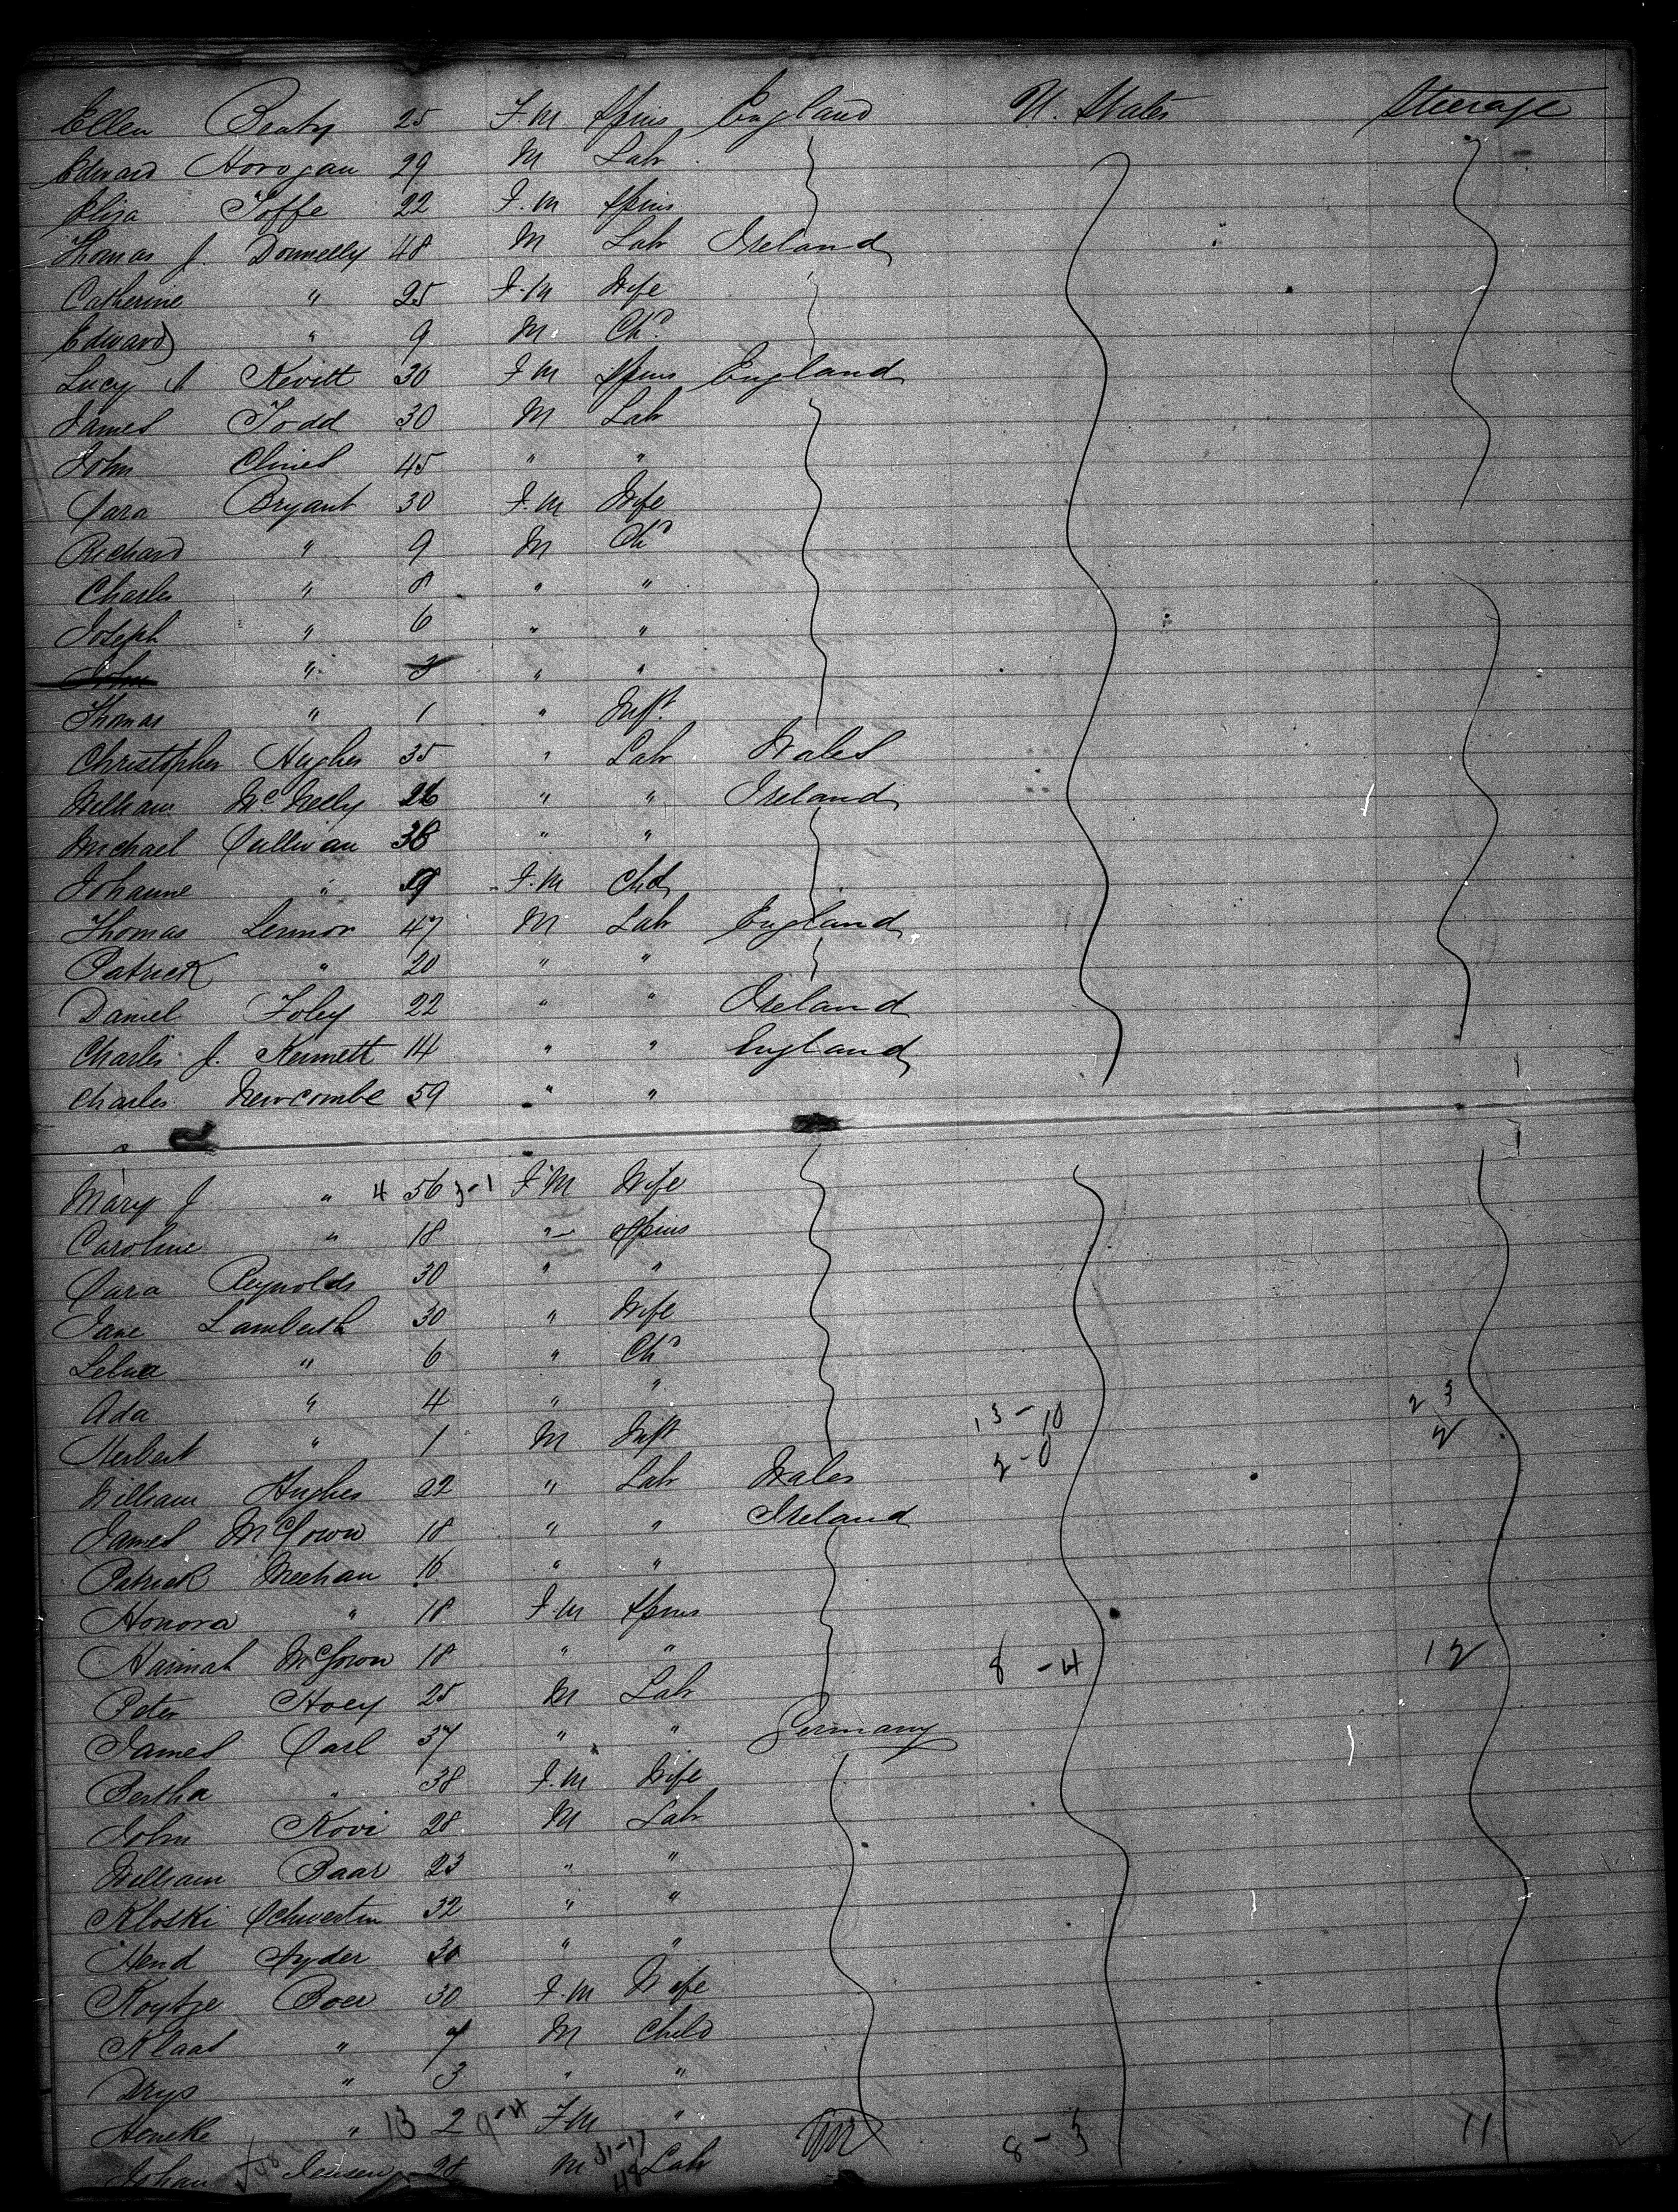 Ellen Beaty 25 F.M Spins England U. States Steerage
Edward Horogan 29 M Labr
Eliza Toffe 22 F.M Spins
Thomas J. Donnelly 48 M Labr Ireland
Catherine " 25 F.M Wife
Edward " 9 M Chd
Lucy A Kevitt 30 F M Spins England
James Todd 30 M Labr
John Clines 45 " "
Sara Bryant 30 F.M Wife
Richard " 9 M Chd
Charles " 8 " "
Joseph " 6 " "
John " 3 " "
Thomas " 1 " Inft.
Christopher Hughes 35 " Labr Wales
William McNelly 26 " " Ireland
Michael Sullivan 38 " "
Johanne " 19 F.M Chd
Thomas Lennon 47 M Labr England
Patrick " 20 " "
Daniel Foley 22 " " Ireland
Charles J. Kennett 14 " " England
Charles Newcombe 59 " "
Mary J " 4 56 3-1 F M Wife
Caroline " 18 " Spins
Sara Reynolds 30 " "
Jane Lambeth 30 " Wife
Selna " 6 " Chd
Ada " 4 " " 13-10 2 3
Herbert " 1 M Inft 2-0 2
William Hughes 22 " Labr Wales
James McGown 18 " " Ireland
Patrick Meehan 16 " "
Honora " 18 F.M Spins
Hannah McGown 18 " " 8-4 12
Peter Hoey 25 M Labr
James Carl 37 " " Germany
Bertha " 38 F.M Wife
John Kovi 28 M Labr
William Baar 23 " "
Kloski Schwertin 32 " "
Hend Syder 30 " "
Koytje Boer 30 F.M Wife
Klaas " 7 M Child
Drys " 3 " "
Heneke " 13 2 9-4 F M " 8-3 11
Johan Jensen 28 M 31-17 48 Labr